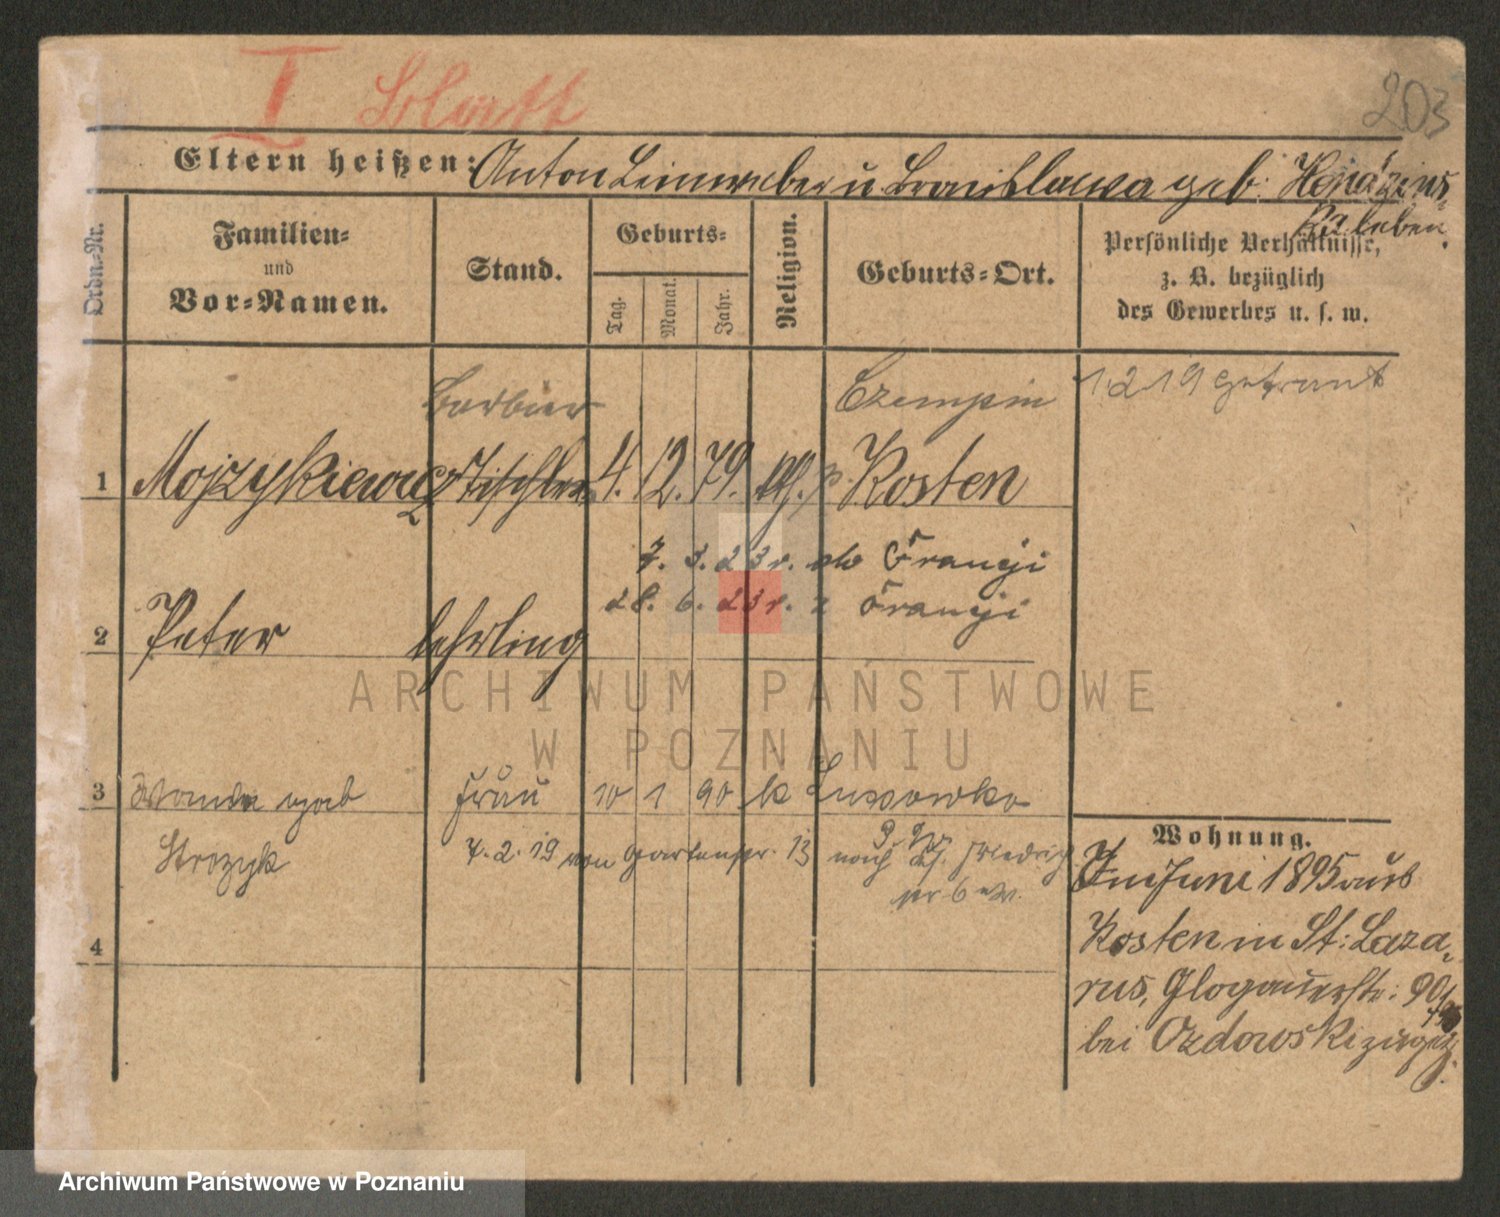 I Blatt
203
Eltern heißen: Anton Leinweber u Bronislawa geb.
ka leben.
Ordn.-Nr.
Familien-
und
Vor-Namen.
Stand.
Geburts-
Tag.
Monat.
Jahr.
Religion.
Geburts-Ort.
Persönliche Verhältnisse,
z. B. bezüglich
des Gewerbes u. s. w.
Barbier
Czempin
1.2 19 getraut
1 Mojzykiewicz Tischler 4. 12. 79. Kosten
7. 3. 23 r. do Francji
28. 6. 23 r. z Francji
2 Peter lehrling
3 Wanda geb Frau 10 1 90 k
Strozyk
7. 2. 19 von Gartenstr. 13 nach
4
Wohnung.
Im Juni 1895 aus
Kosten in St: Laza-
rus, Glogauerstr: 90/
bei Ozdowski zugez.
ARCHIWUM PAŃSTWOWE
W POZNANIU
Archiwum Państwowe w Poznaniu